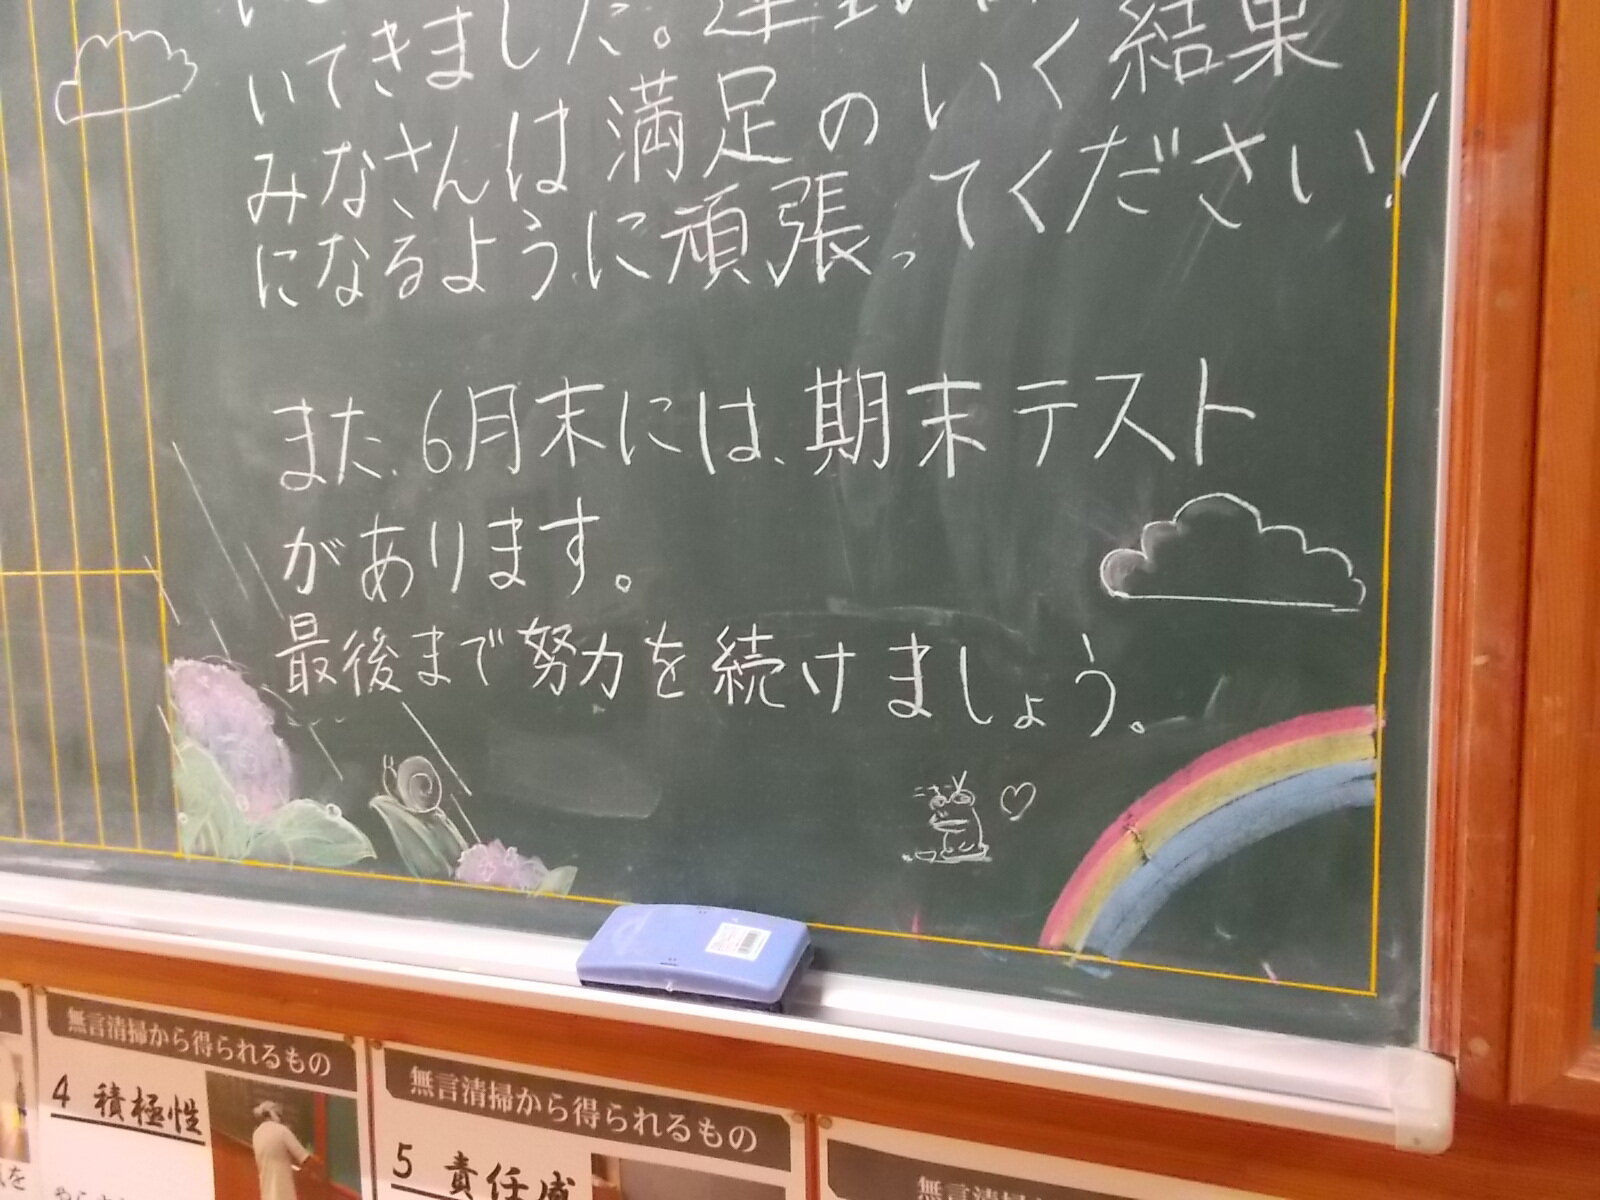 いてきました。運動
みなさんは満足のいく結果
になるように頑張ってください!
また、6月末には、期末テスト
があります。
最後まで努力を続けましょう。
無言清掃から得られるもの
4 積極性
無言清掃から得られるもの
5 責任感
無言清掃から得られるもの